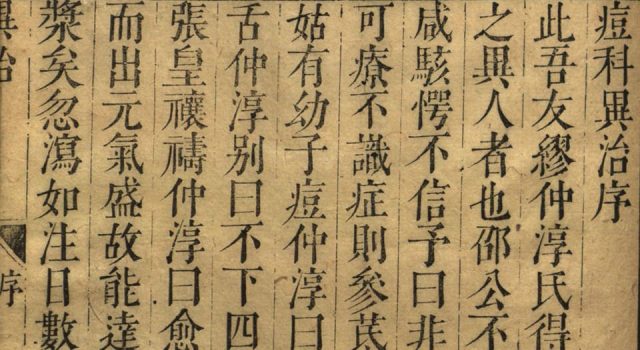 痘科異治序
此吾友繆仲淳氏得
之異人者也邵公不
咸駭愕不信予曰非
可療不識症則參芪
姑有幼子痘仲淳曰
舌仲淳别曰不下四
張皇禳禱仲淳曰愈
而出元氣盛故能達
漿矣忽瀉如注日數
異治
序